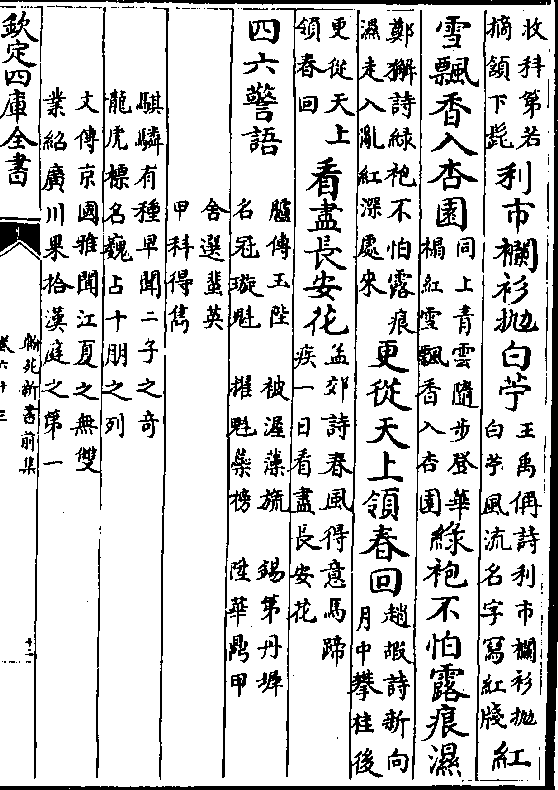 收科第若摘頷下髭利市襴衫拋白苧王禹偁詩利市襴衫拋白苧風流名字寫紅牋紅
雪飄香入杏園同上青雲隨步登華榻紅雪飄香入杏園綠袍不怕露痕濕
鄭獬詩綠袍不怕露痕濕走入亂紅深處來更從天上領春回趙嘏詩新向月中攀桂後
更從天上領春回看盡長安花孟郊詩春風得意馬蹄疾一日看盡長安花
四六警語 臚傳玉陛名冠璇魁 被渥藻旒擢魁蘂榜 錫第丹墀陞華鼎甲
舍選蜚英甲科得雋
騏驎有種早聞二子之奇龍虎標名巍占十朋之列
文傳京國雅聞江夏之無雙業紹廣川果拾漢庭之第一
欽定四庫全書 翰苑新書前集卷六十三 十二